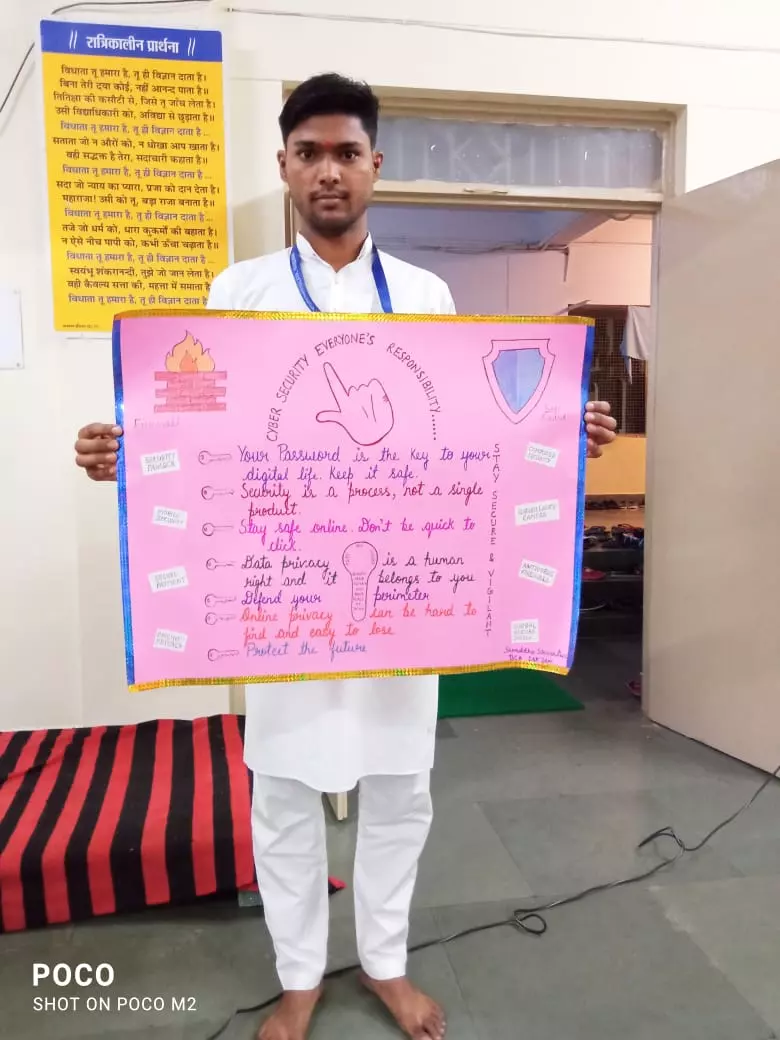 // रात्रिकालीन प्रार्थना //
विधाता तू हमारा है, तू ही विज्ञान दाता है।
बिना तेरी दया कोई, नहीं आनन्द पाता है॥
तितिक्षा की कसौटी से, जिसे तू जाँच लेता है।
उसी विद्याधिकारी को, अविद्या से छुड़ाता है॥
विधाता तू हमारा है, तू ही विज्ञान दाता है...
सताता जो न औरों को, न धोखा आप खाता है।
वही सद्भक्त है तेरा, सदाचारी कहाता है॥
विधाता तू हमारा है, तू ही विज्ञान दाता है...
सदा जो न्याय का प्यारा, प्रजा को दान देता है।
महाराजा! उसी को तू, बड़ा राजा बनाता है॥
विधाता तू हमारा है, तू ही विज्ञान दाता है...
तजे जो धर्म को, धारा कुकर्मों की बहाता है।
न ऐसे नीच पापी को, कभी ऊँचा चढ़ाता है॥
विधाता तू हमारा है, तू ही विज्ञान दाता है...
स्वयंभू शंकरानन्दी, तुझे जो जान लेता है।
वही कैवल्य सत्ता की, महत्ता में समाता है
विधाता तू हमारा है, तू ही विज्ञान दाता है
CYBER SECURITY EVERYONE'S RESPONSIBILITY.....
Firewall
SECURITY
MOBILE
SECURITY
ONLINE
Your Password is the key to your
digital life. Keep it safe.
Security is a process, not a single
product.
Stay safe online. Don't be quick to
click.
Data privacy is a human
right and it belongs to you
Defend your perimeter
Online privacy can be hard to
find and easy to lose
Protect the future
STAY SECURE & VIGILANT
COMPUTER
SECURITY
SURVEILLANCE
CAMERA
ANTIVIRUS
POCO
SHOT ON POCO M2